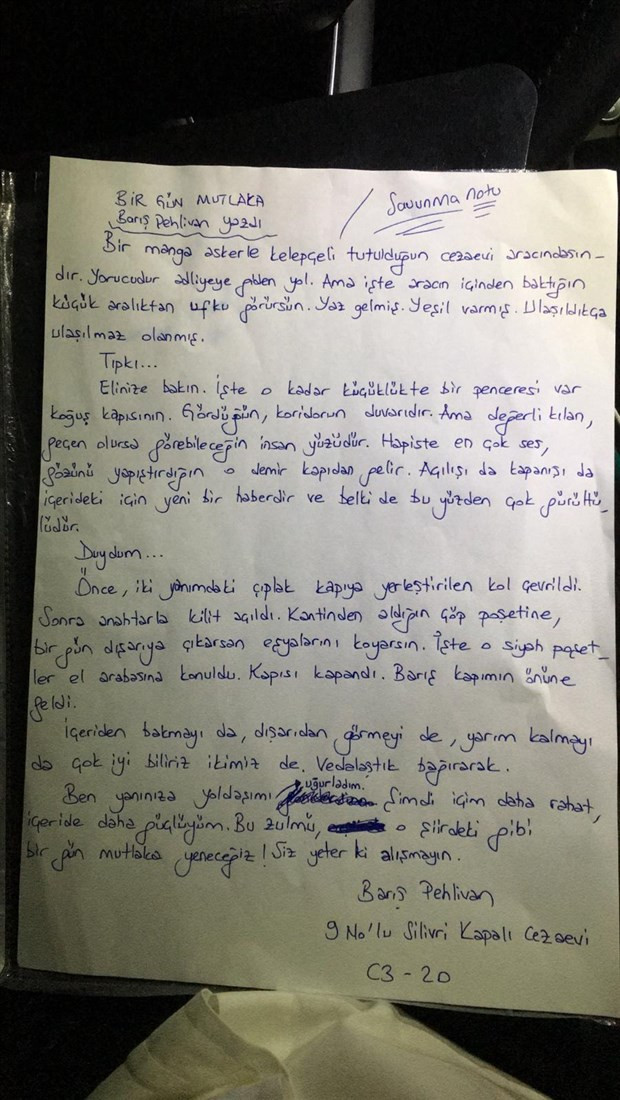 BİR GÜN MUTLAKA / Savunma notu
Barış Pehlivan yazdı
Bir manga askerle kelepçeli tutulduğun cezaevi aracındasın-
dır. Yorucudur adliyeye giden yol. Ama işte aracın içinden baktığın
küçük aralıktan ufku görürsün. Yaz gelmiş. Yeşil varmış. Ulaşıldıkça
ulaşılmaz olanmış.
Tıpkı...
Elinize bakın. İşte o kadar küçüklükte bir penceresi var
koğuş kapısının. Gördüğün, koridorun duvarıdır. Ama değerli kılan,
geçen olursa görebileceğin insan yüzüdür. Hapiste en çok ses,
gözünü yapıştırdığın o demir kapıdan gelir. Açılışı da kapanışı da
içerideki için yeni bir haberdir ve belki de bu yüzden çok gürültü_
lüdür.
Duydum...
Önce, iki yanımdaki çıplak kapıya yerleştirilen kol çevrildi.
Sonra anahtarla kilit açıldı. Kantinden aldığın çöp poşetine,
bir gün dışarıya çıkarsan eşyalarını koyarsın. İşte o siyah poşet_
ler el arabasına konuldu. Kapısı kapandı. Barış kapımın önüne
geldi.
İçeriden bakmayı da, dışarıdan görmeyi de, yarım kalmayı
da çok iyi biliriz ikimiz de. Vedalaştık bağırarak.
Ben yanınıza yoldaşımı uğurladım. Şimdi içim daha rahat,
içeride daha güçlüyüm. Bu zulmü, o şiirdeki gibi
bir gün mutlaka yeneceğiz! Siz yeter ki alışmayın.
Barış Pehlivan
9 No'lu Silivri Kapalı Cezaevi
C3-20